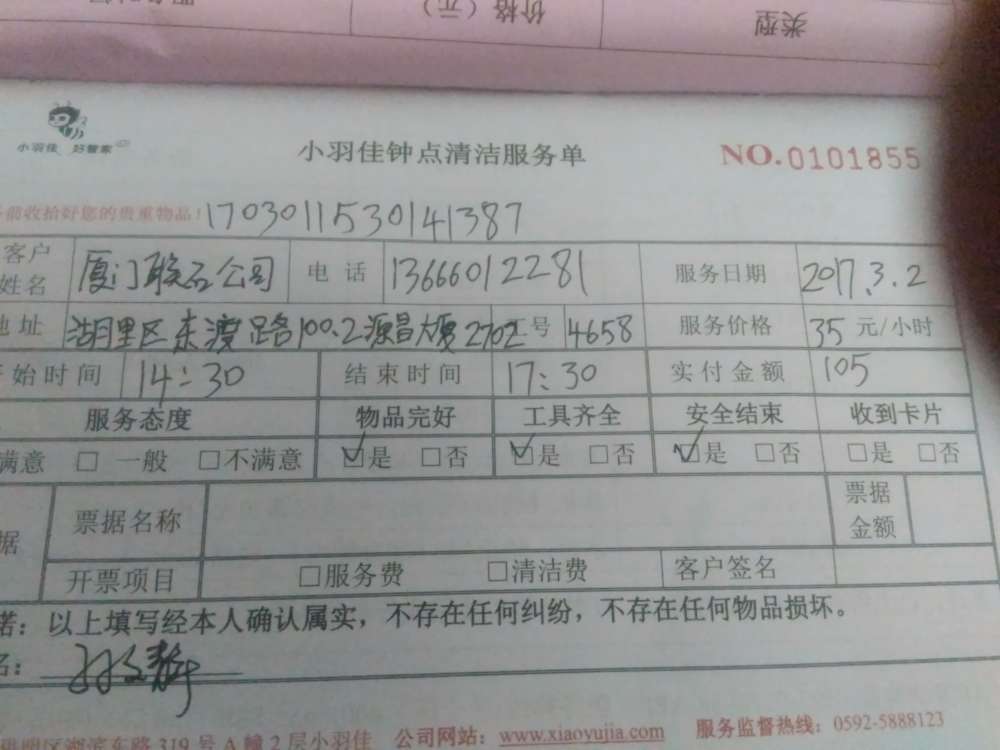 类型 价格（元）
小羽佳 好管家
小羽佳钟点清洁服务单 NO.0101855
前收拾好您的贵重物品！1703011530141387
客户姓名 厦门联石公司 电话 13666012281 服务日期 2017.3.2
地址 湖里区东渡路100.2源昌大厦2702 工号 4658 服务价格 35元/小时
开始时间 14:30 结束时间 17:30 实付金额 105
服务态度 物品完好 工具齐全 安全结束 收到卡片
满意 □一般 □不满意 ☑是 □否 ☑是 □否 ☑是 □否 □是 □否
据 票据名称 票据金额
开票项目 □服务费 □清洁费 客户签名
诺：以上填写经本人确认属实，不存在任何纠纷，不存在任何物品损坏。
名：
明区湖滨东路319号A幢2层小羽佳 公司网站：www.xiaoyujia.com 服务监督热线：0592-5888123